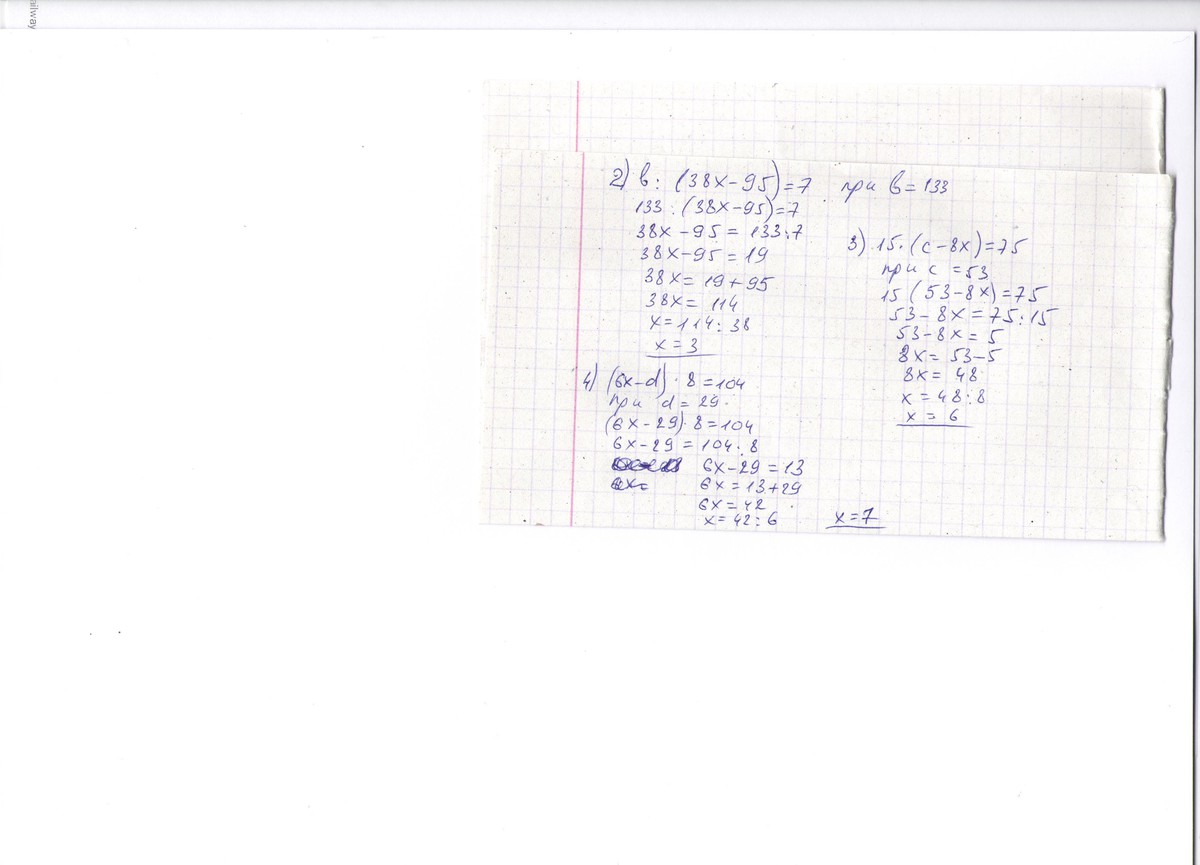 ailway
2) в : (38х-95)=7 при в=133
133 : (38х-95)=7
38х-95 = 133:7
38х-95 = 19
38х= 19+95
38х= 114
х=114:38
х=3
3) 15·(с-8х)=75
при с =53
15 (53-8х)=75
53-8х=75:15
53-8х= 5
8х= 53-5
8х= 48
х=48:8
х= 6
4) (6х-d)·8=104
при d=29
(6х-29)·8=104
6х-29=104:8
6х-29=13
6х=
6х=13+29
6х=42
х=42:6 х=7